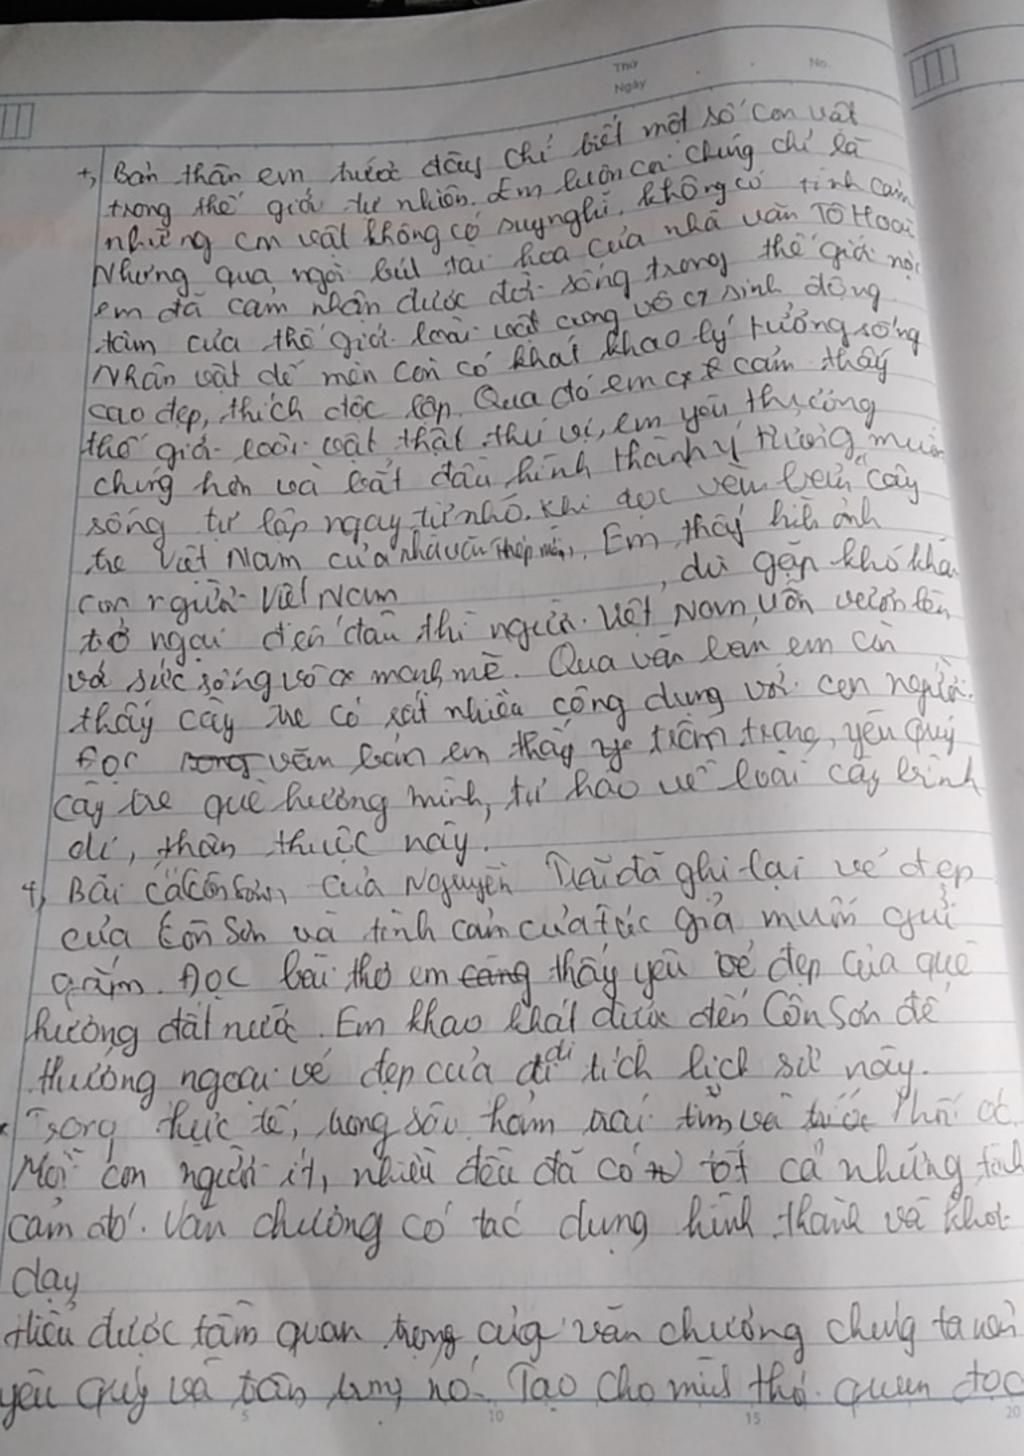 Thứ
Ngày
No.
+, Bản thân em trước đây chỉ biết một số con vật
trong thế giới tự nhiên. Em luôn coi chúng chỉ là
những con vật không có suy nghĩ, không có tình cảm
Nhưng qua ngòi bút tài hoa của nhà văn Tô Hoài
em đã cảm nhận được đời sống trong thế giới nội
tâm của thế giới loài vật cũng vô cx sinh động
Nhân vật dế mèn còn có khát khao lý tưởng sống
cao đẹp, thích độc lập. Qua đó em cx cảm thấy
thế giới loài vật thật thú vị, em yêu thương
chúng hơn và bắt đầu hình thành ý tưởng muốn
sống tự lập ngay từ nhỏ. Khi đọc văn bản cây
tre Việt Nam của nhà văn Thép mới, Em thấy hình ảnh
con người Việt Nam , dù gặp khó khăn
trở ngại đến đâu thì người Việt Nam vẫn vươn lên
với sức sống vô cx mạnh mẽ. Qua văn bản em còn
thấy cây tre có rất nhiều công dụng với con người.
Đọc văn bản em thấy trân trọng, yêu quý
cây tre quê hương mình, tự hào về loài cây bình
dị, thân thuộc này.
+, Bài ca Côn Sơn, của Nguyễn Trãi đã ghi lại vẻ đẹp
của Côn Sơn và tình cảm của tác giả muốn gửi
gắm. Đọc bài thơ em thấy yêu vẻ đẹp của quê
hương đất nước. Em khao khát được đến Côn Sơn để
thưởng ngoại vẻ đẹp của di tích lịch sử này.
Trong thực tế, trong sâu thẳm trái tim và khối óc
Mọi con người ít, nhiều đều đã có tất cả những tình
cảm đó. Văn chương có tác dụng hình thành và khơi
dạy
Hiểu được tầm quan trọng của văn chương chúng ta
yêu quý và trân trọng nó. Tạo cho mình thói quen đọc
5 10 15 20